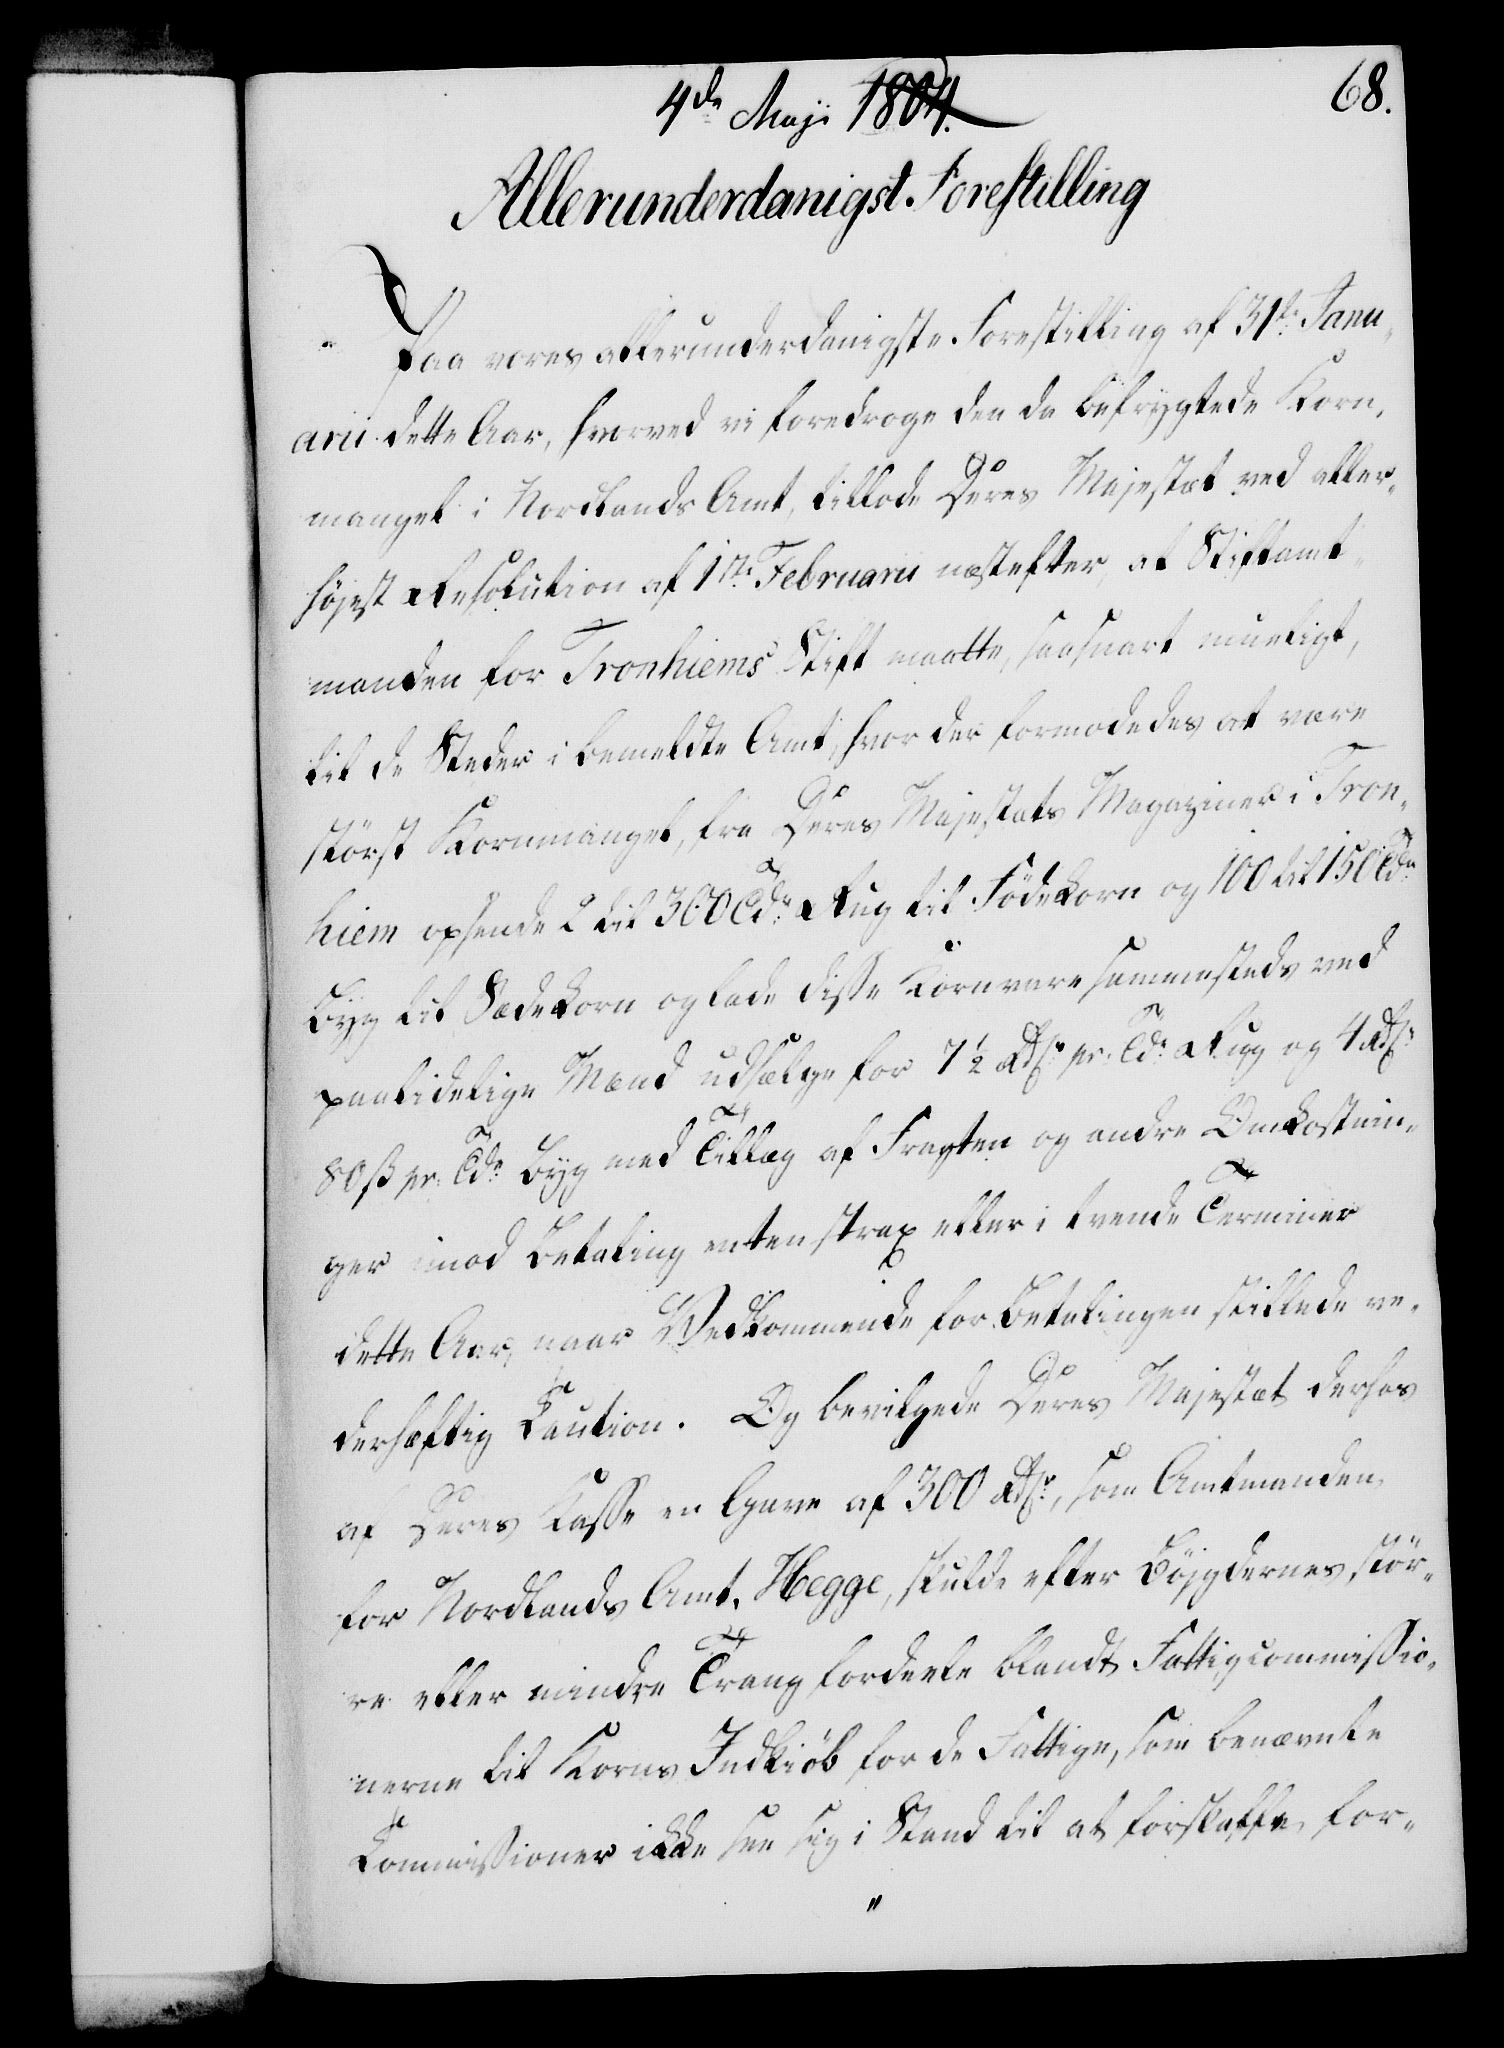 4de Maji 1804.
68.
Allerunderdanigst Forestilling
Paa vores allerunderdanigste Forestilling af 31te Janu-
arii dette Aar, hvorved vi foredroge den da befrygtede Korn-
mangel i Nordlands Amt, tillode Deres Majestæt ved aller-
højest Resolution af 1ste Februarii næstefter, at Stiftamt-
manden for Tronhiems Stift maatte, saasnart mueligt,
til de Steder i bemeldte Amt, hvor der formodedes at være
störst Kornmangel, fra Deres Majestæts Magaziner i Tron-
hiem opsende 2 til 300 Tdr Rug til Födekorn og 100 til 150 Tdr
Byg til Sædekorn og lade disse Kornvare sammesteds ved
paalidelige Mænd udsælge for 7½ Rdlr pr. Tde Rug og 4 Rdlr
80 ß pr. Tde Byg med Tillæg af Fragten og andre Omkostnin-
ger imod Betaling enten strax eller i tvende Terminer
dette Aar, naar Vedkommende for Betalingen stillede ve-
derhæftig Caution. Og bevilgede Deres Majestæt derhos
af Deres Kasse en Gave af 300 Rdlr, som Amtmanden
for Nordlands Amt, Hegge, skulde efter Böjgdernes stör-
re eller mindre Trang fordeele blandt Fattigcommissio-
nerne til Korns Indkiöb for de Fattige, som benævnte
Commissioner ikke see sig i Stand til at forskaffe for-
"